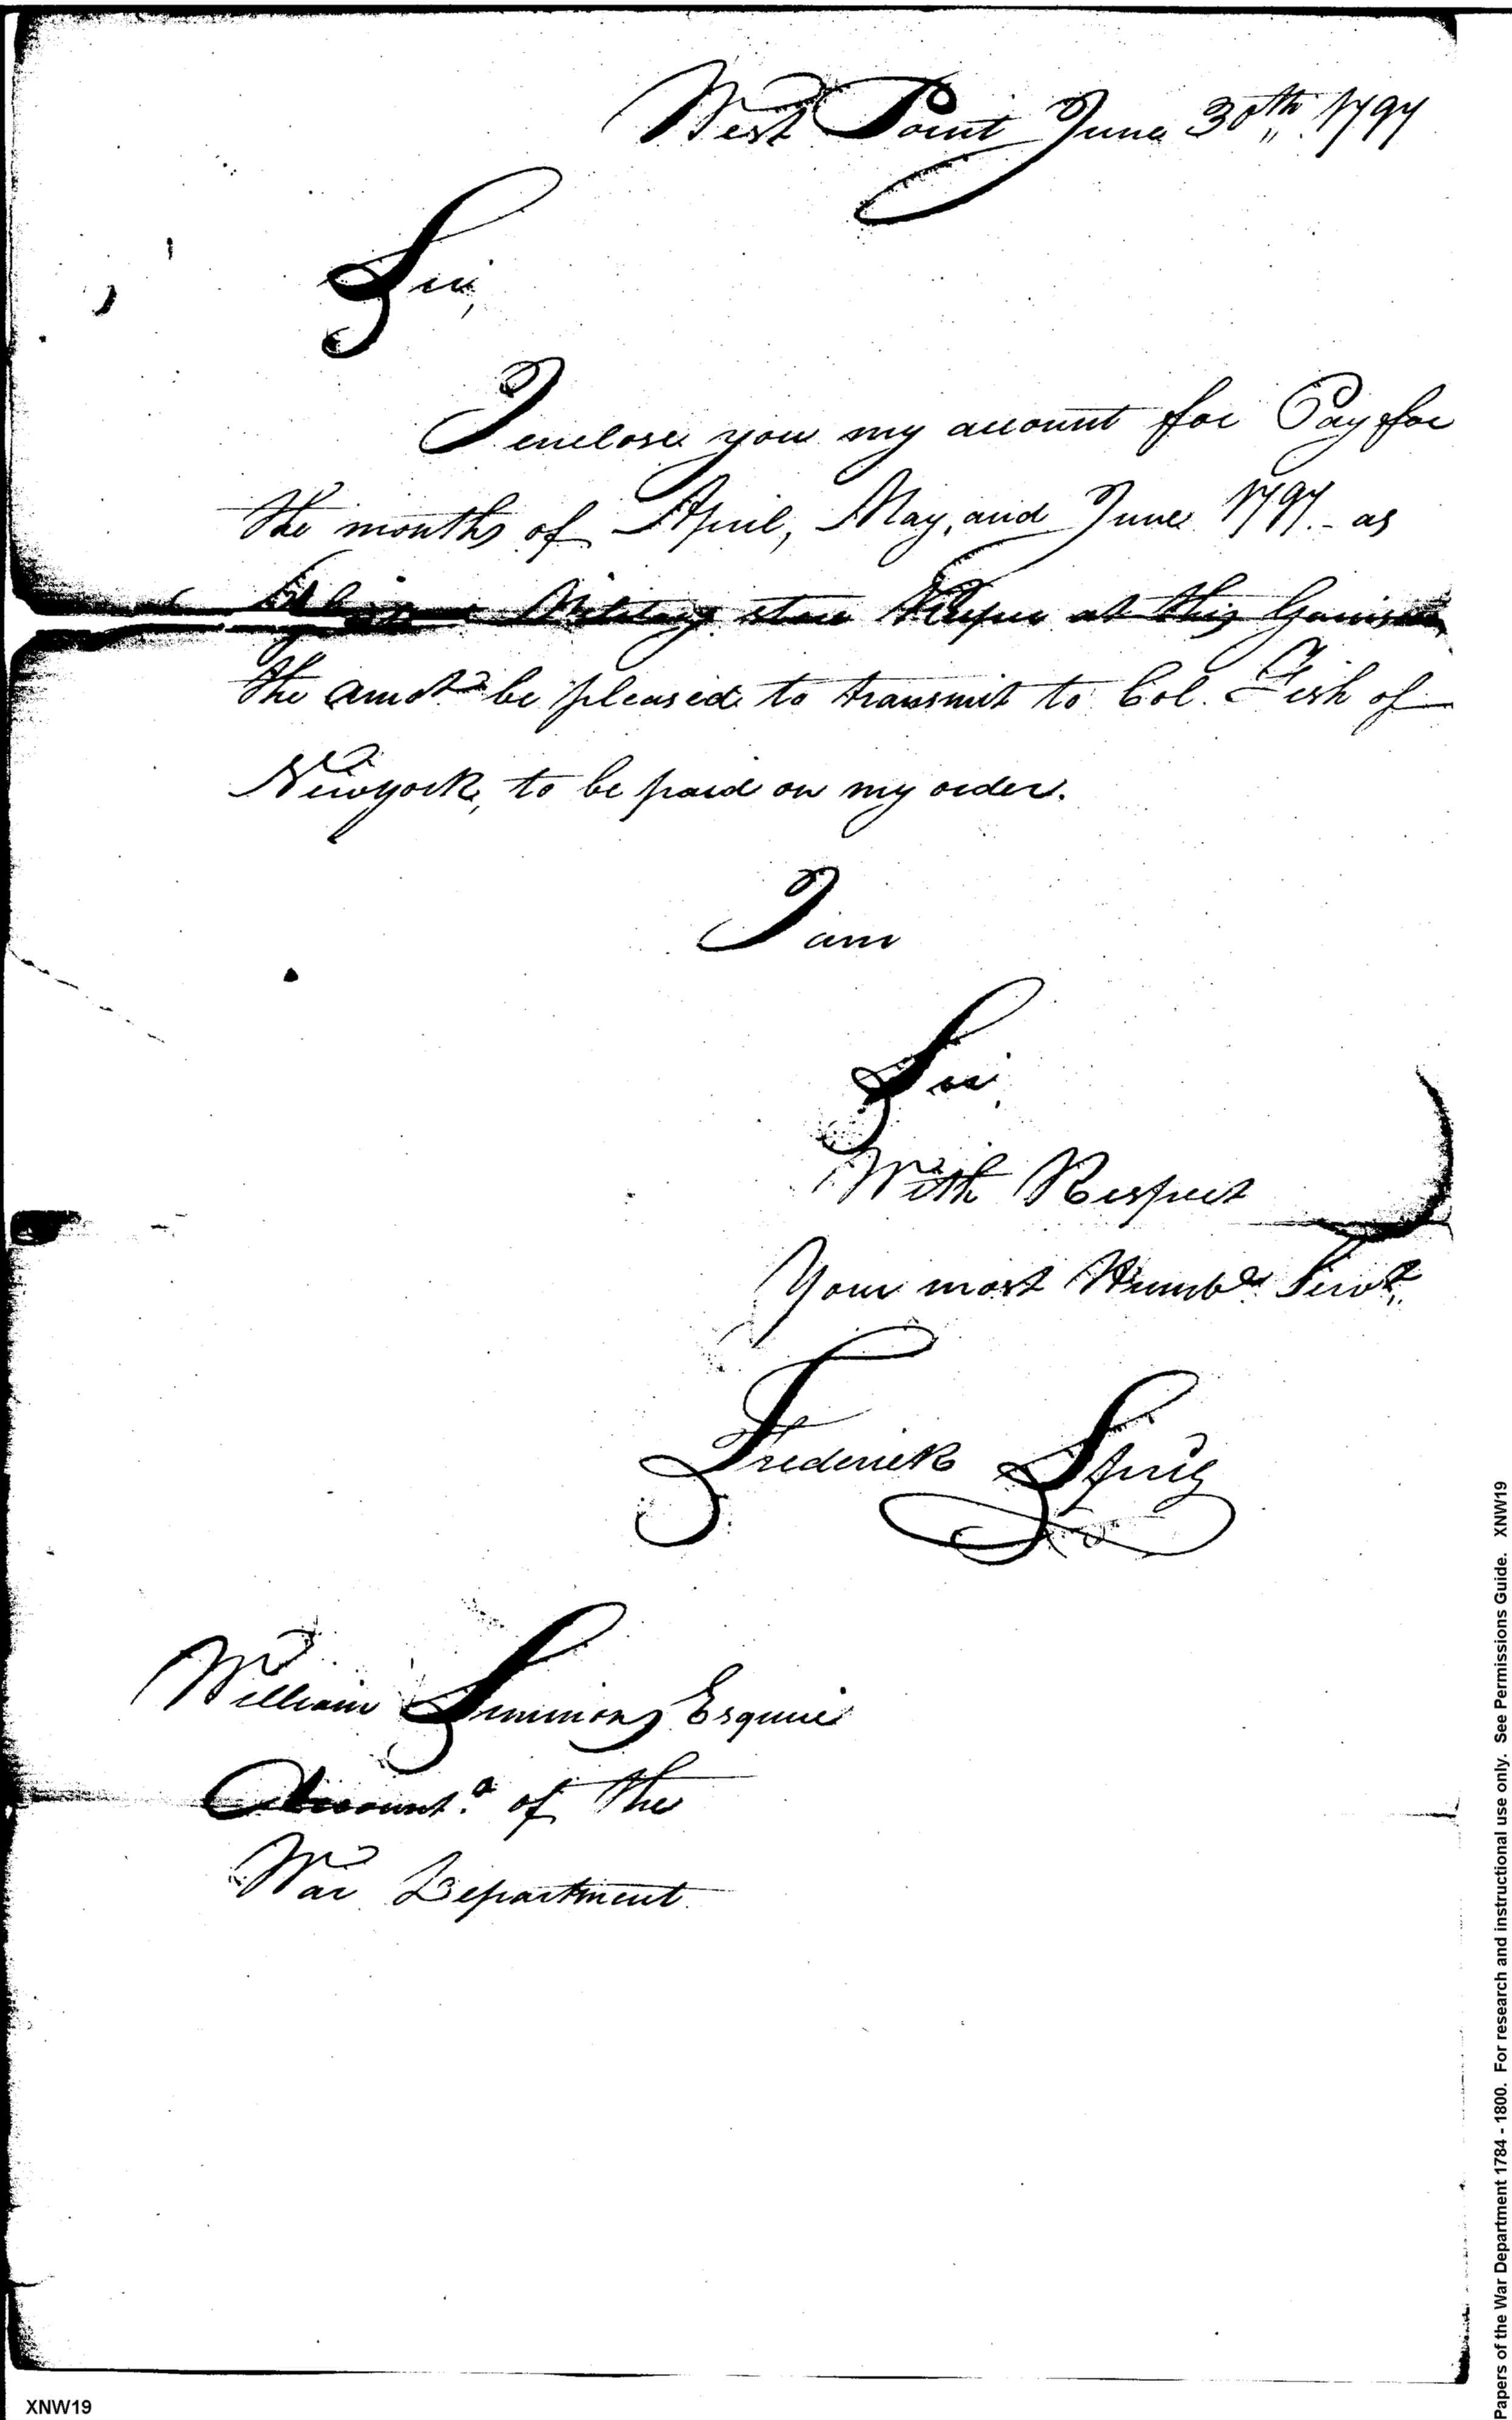 West Point June 30th 1797
Sir,
I enclose you my account for Pay for
the months of April, May, and June 1797. as
Military store Keeper at this Garrison
the amot. be pleased to transmit to Col. Fish of
Newyork, to be paid on my order.
I am
Sir,
With Respect
Your most Humbe. Servt.
Frederick Sprig
William Simmons Esquire
Account.a of the
War Department.
XNW19
Papers of the War Department 1784 - 1800. For research and instructional use only. See Permissions Guide. XNW19